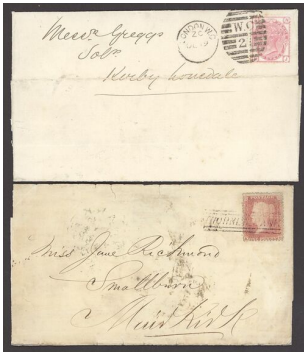 Messrs Greggs
Solrs
Kirby Lonsdale
LONDON.W.C
W.C
2
Miss Jane Richmond
Smallburn
Muirkirk